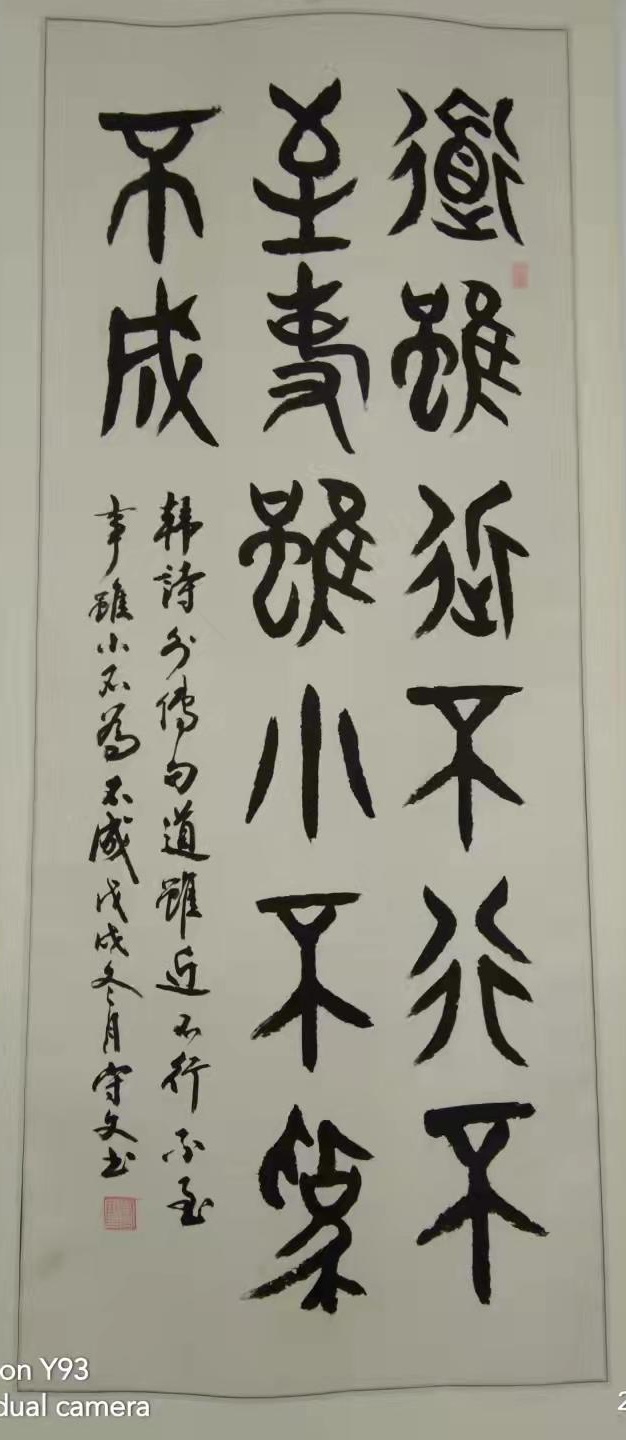 道雖近不行不
至事雖小不為
不成
韓詩外傳句道雖近不行不至
事雖小不為不成戊戌冬月守文書
on Y93
dual camera
2